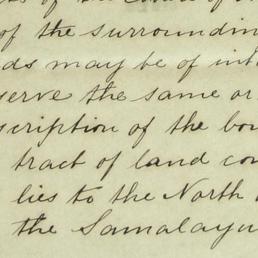 of the surroundin
ds may be of int
serve the same or
scription of the bo
tract of land con
lies to the North
the Samalayu